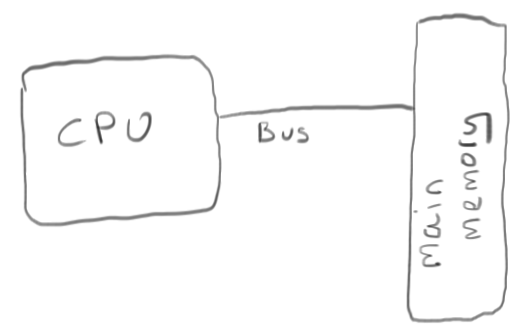 CPU
Bus
Main
Memory